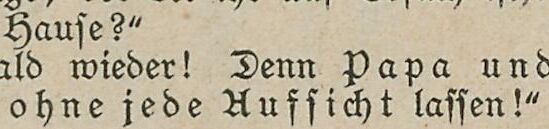 Hauſe?“
ald wieder! Denn Papa und
ohne jede Aufſicht laſſen!“